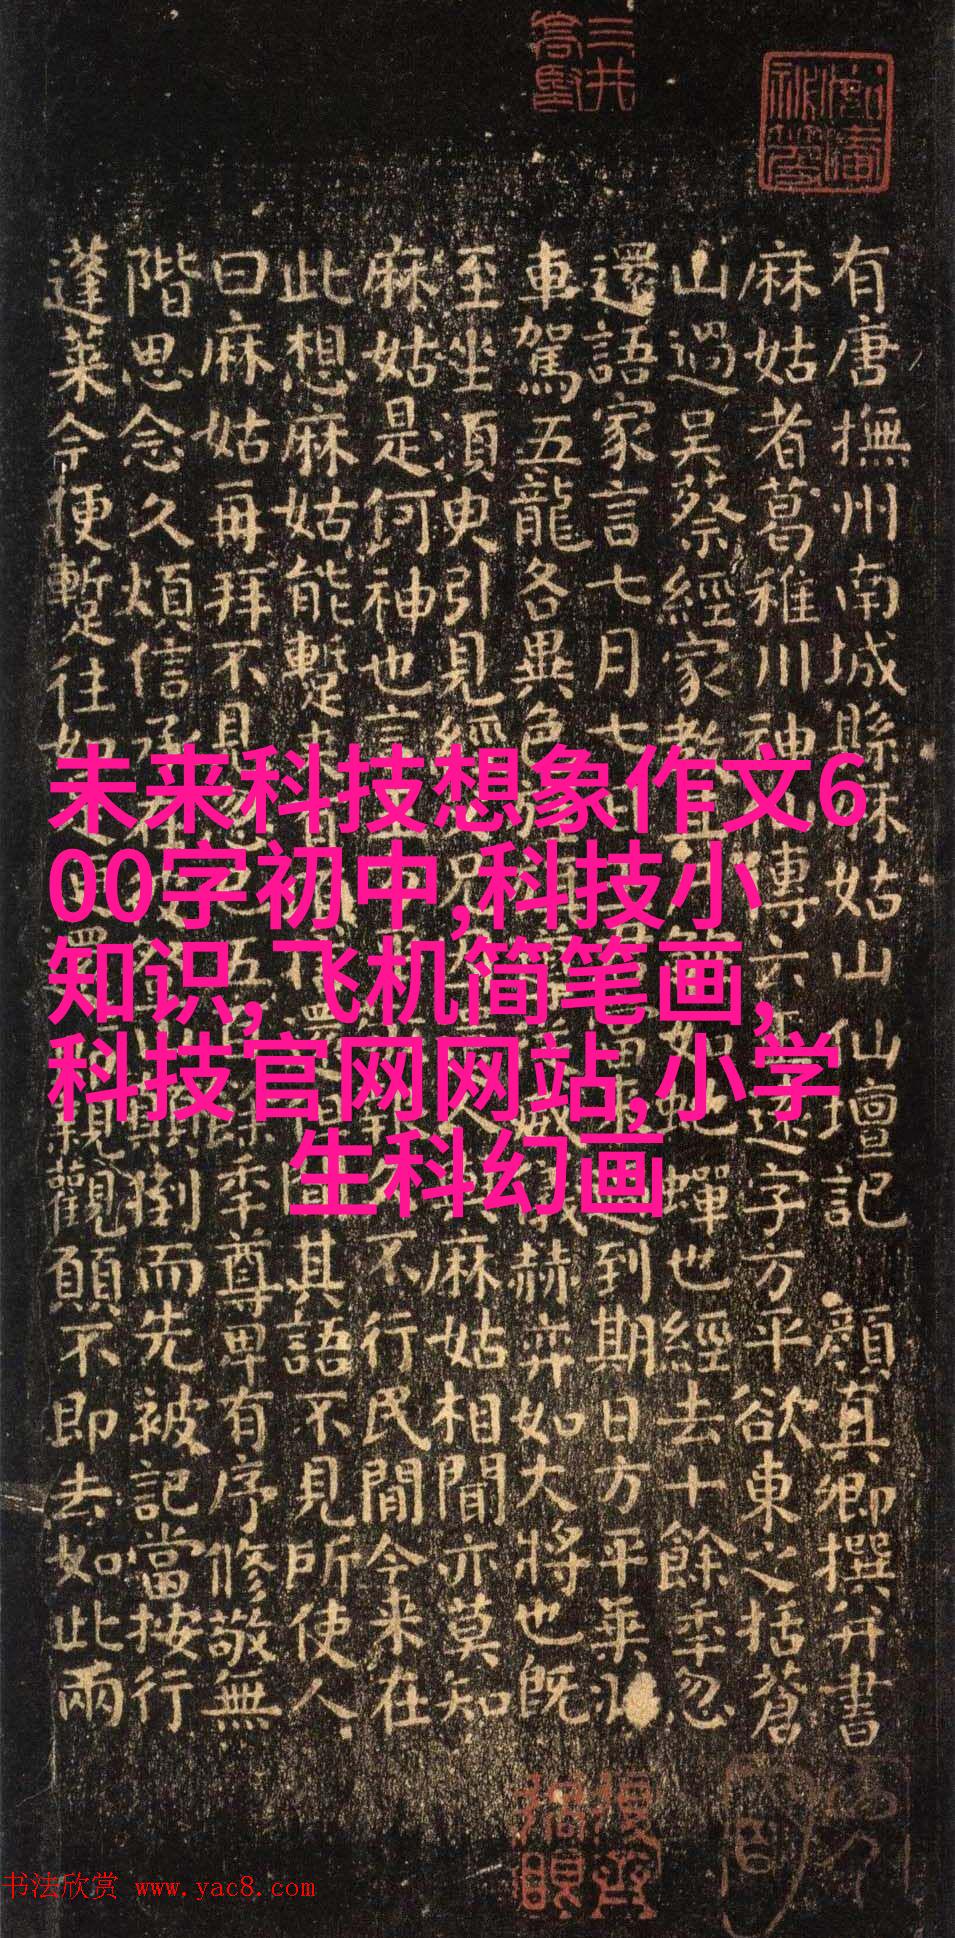 三井高堅
未来科技想象作文6
00字初中,科技小
知识,飞机简笔画,
科技官网网站,小学
生科幻画
有唐撫州南城縣麻姑山仙壇記 顏真卿撰并書
麻姑者葛稚川神仙傳云遠字方平欲東之括蒼
山過吳蔡經家教其如蛇蟬也經去十餘年忽
還語家言七月七日過到期日方平乘羽
車駕五龍各異色威儀赫弈如大將也既
至坐須臾引見經人與麻姑相聞亦莫知
麻姑是何神也言不行民間今来在
此想麻姑能蹔来聞其語不見所使人
曰麻姑再拜不見忽已五餘年尊卑有序修敬無
階思念久煩信承在顛倒而先被記當按行
蓬萊今便蹔往如親觀願不即去如此兩
书法欣赏 www.yac8.com